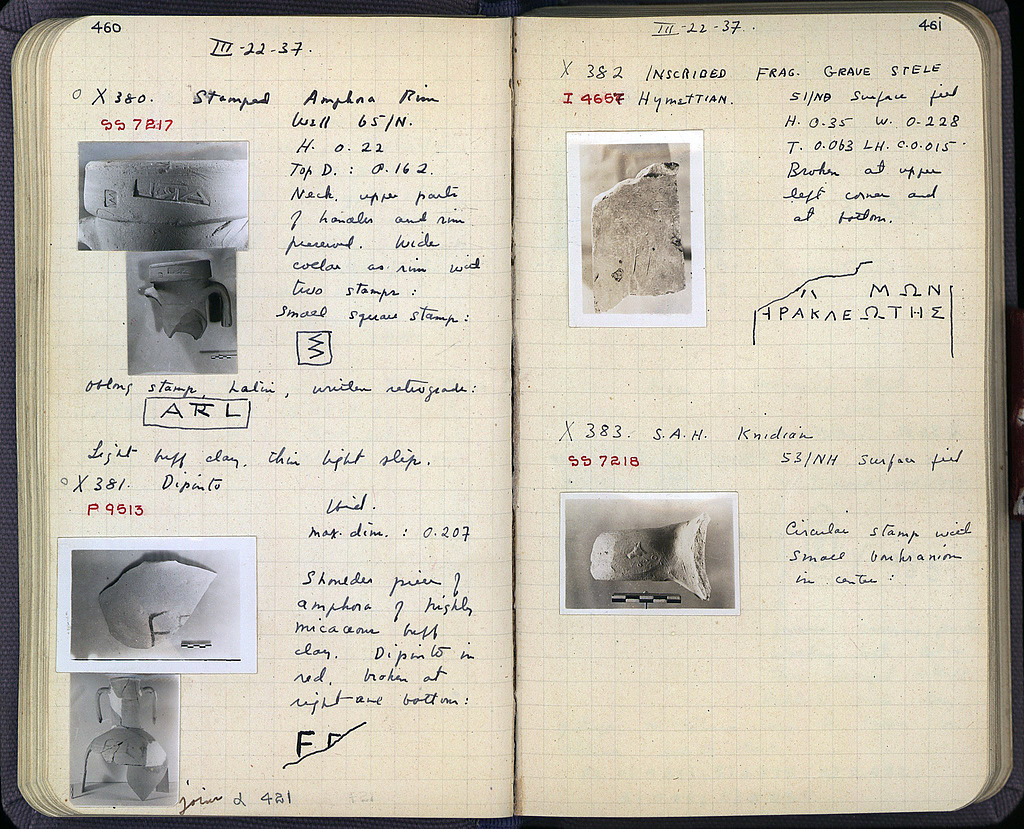 460
III-22-37.
X 380. Stamped Amphora Rim
SS 7217
Well 65/N.
H. 0.22
Top D.: 0.162.
Neck, upper parts
of handles and rim
preserved. Wide
collar as rim with
two stamps:
Small square stamp:
oblong stamp, Latin, written retrograde:
ARL
Light buff clay, thin light slip.
X 381. Dipinto
P 9513
Ibid.
max. dim.: 0.207
Shoulder piece of
amphora of highly
micaceous buff
clay. Dipinto in
red, broken at
right and bottom:
F
joins α 421
III-22-37.
461
X 382 INSCRIBED FRAG. GRAVE STELE
I 4657 HYMETTIAN.
51/NΘ Surface fill
H. 0.35 W. 0.228
T. 0.063 LH. C.0.015
Broken at upper
left corner and
at bottom.
ΜΩΝ
ΗΡΑΚΛΕΩΤΗΣ
X 383. S.A.H. Knidian
SS 7218
53/NH Surface fill
Circular stamp with
small bukranion
in center: